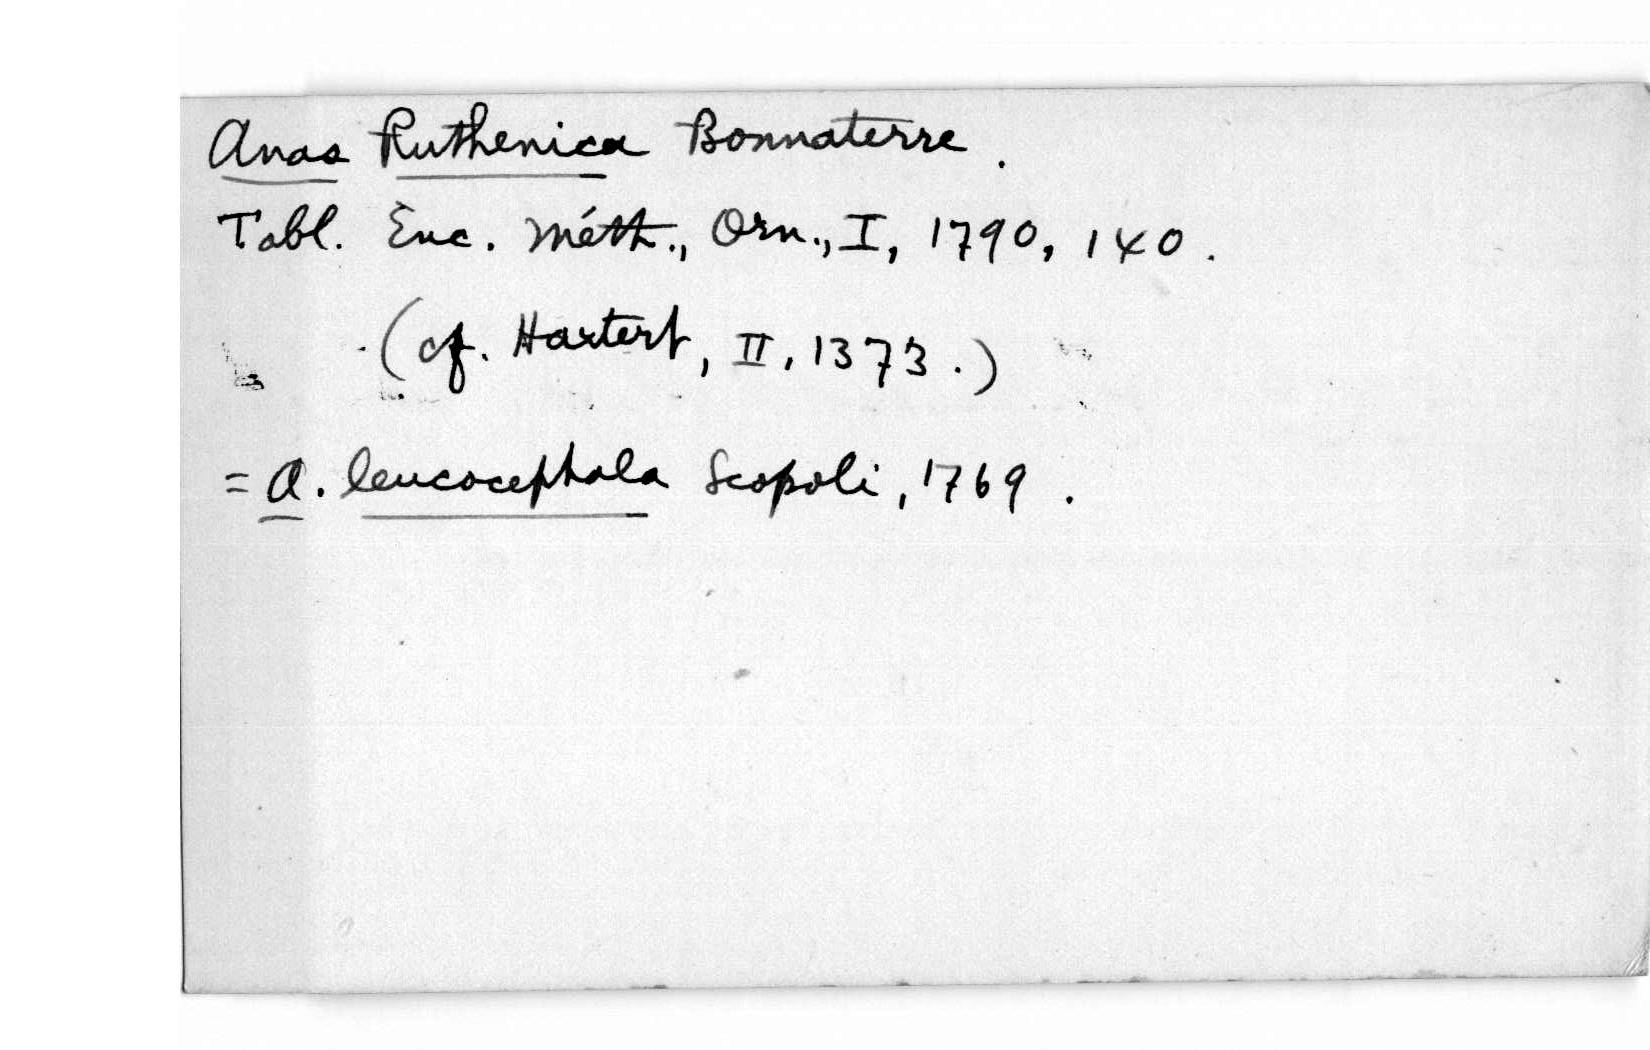 Anas Ruthenica Bonnaterre.
Tabl. Enc. Méth., Orn., I, 1790, 140.
(cf. Hartert, II, 1373.)
= A. leucocephala Scopoli, 1769.